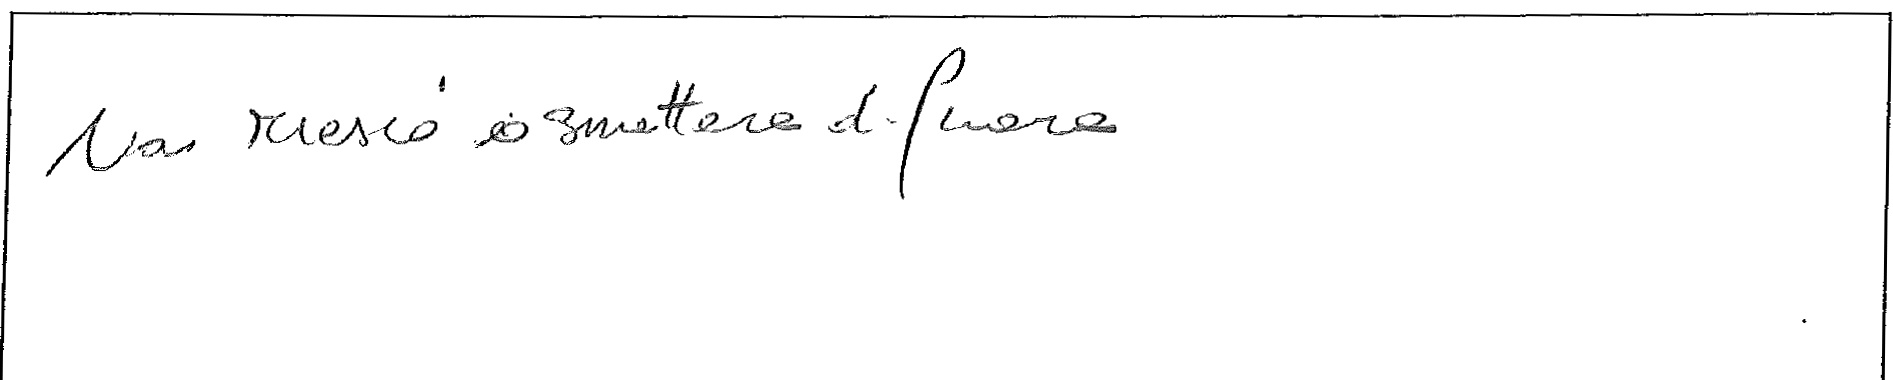 Non riesco a smettere di fumare